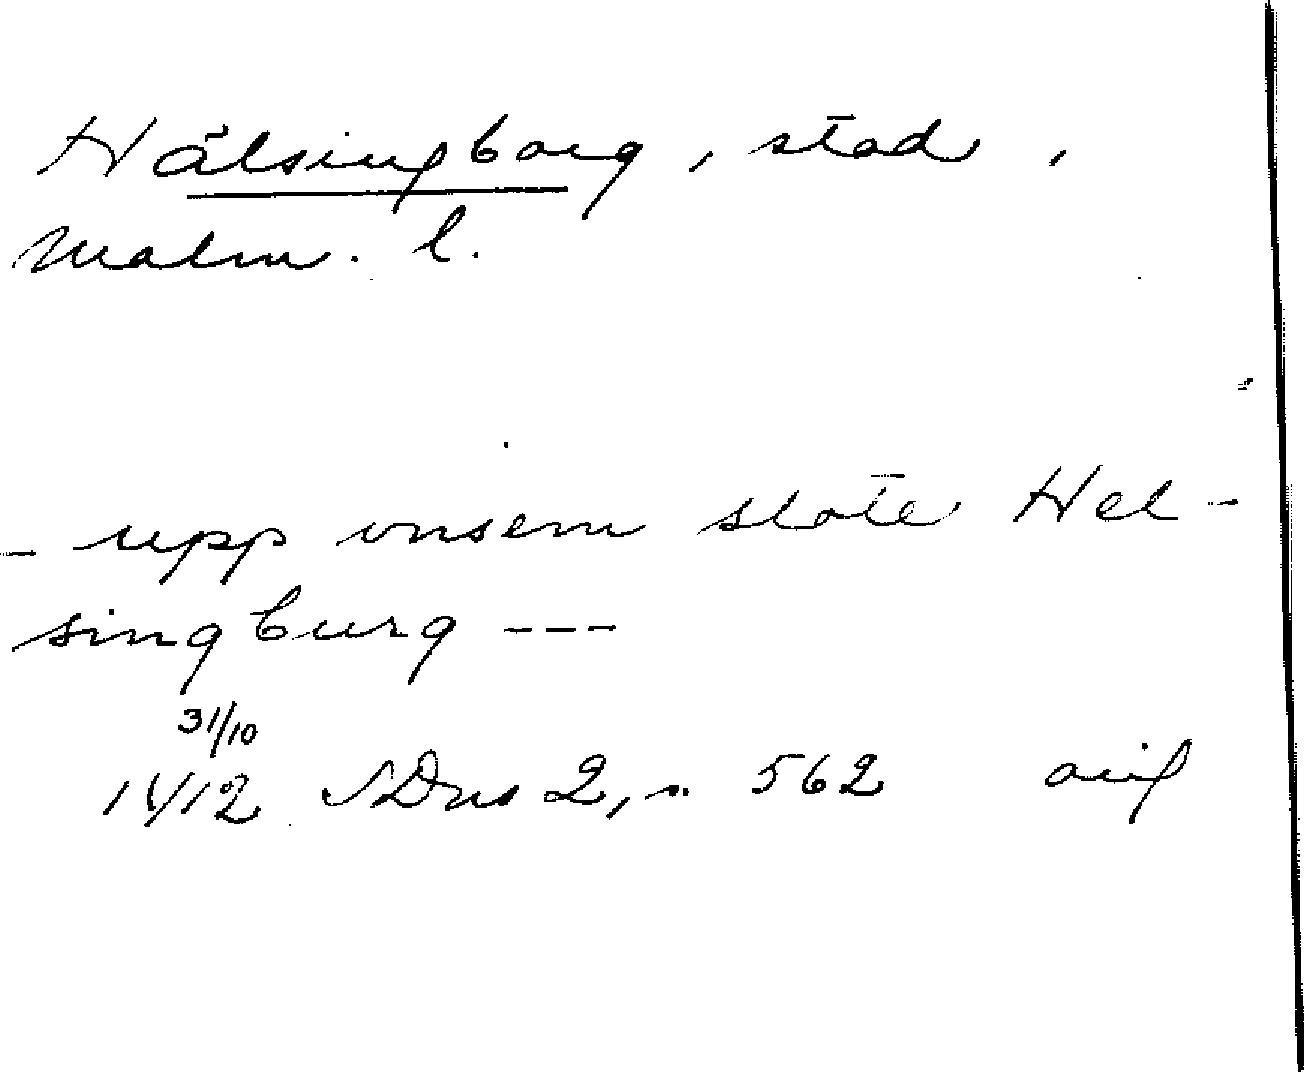 Hälsingborg, stad,
Malm. l.
- upp vnsem slote Hel-
singburg ---
31/10
1412 SDns 2, s. 562 avf